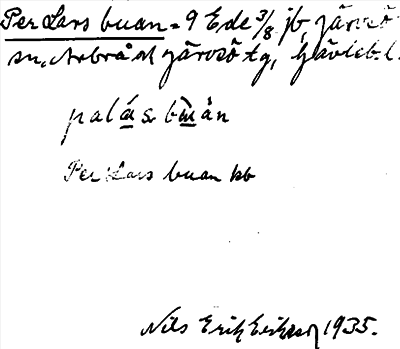 Per Lars buan = 9 Ede 3/8 jb, Järvsö
sn, Arbrå al Järvsö tg, Gävleb. l.
palás bu̱àn
Per Lars buan kb
Nils Erik Eriksson 1935.